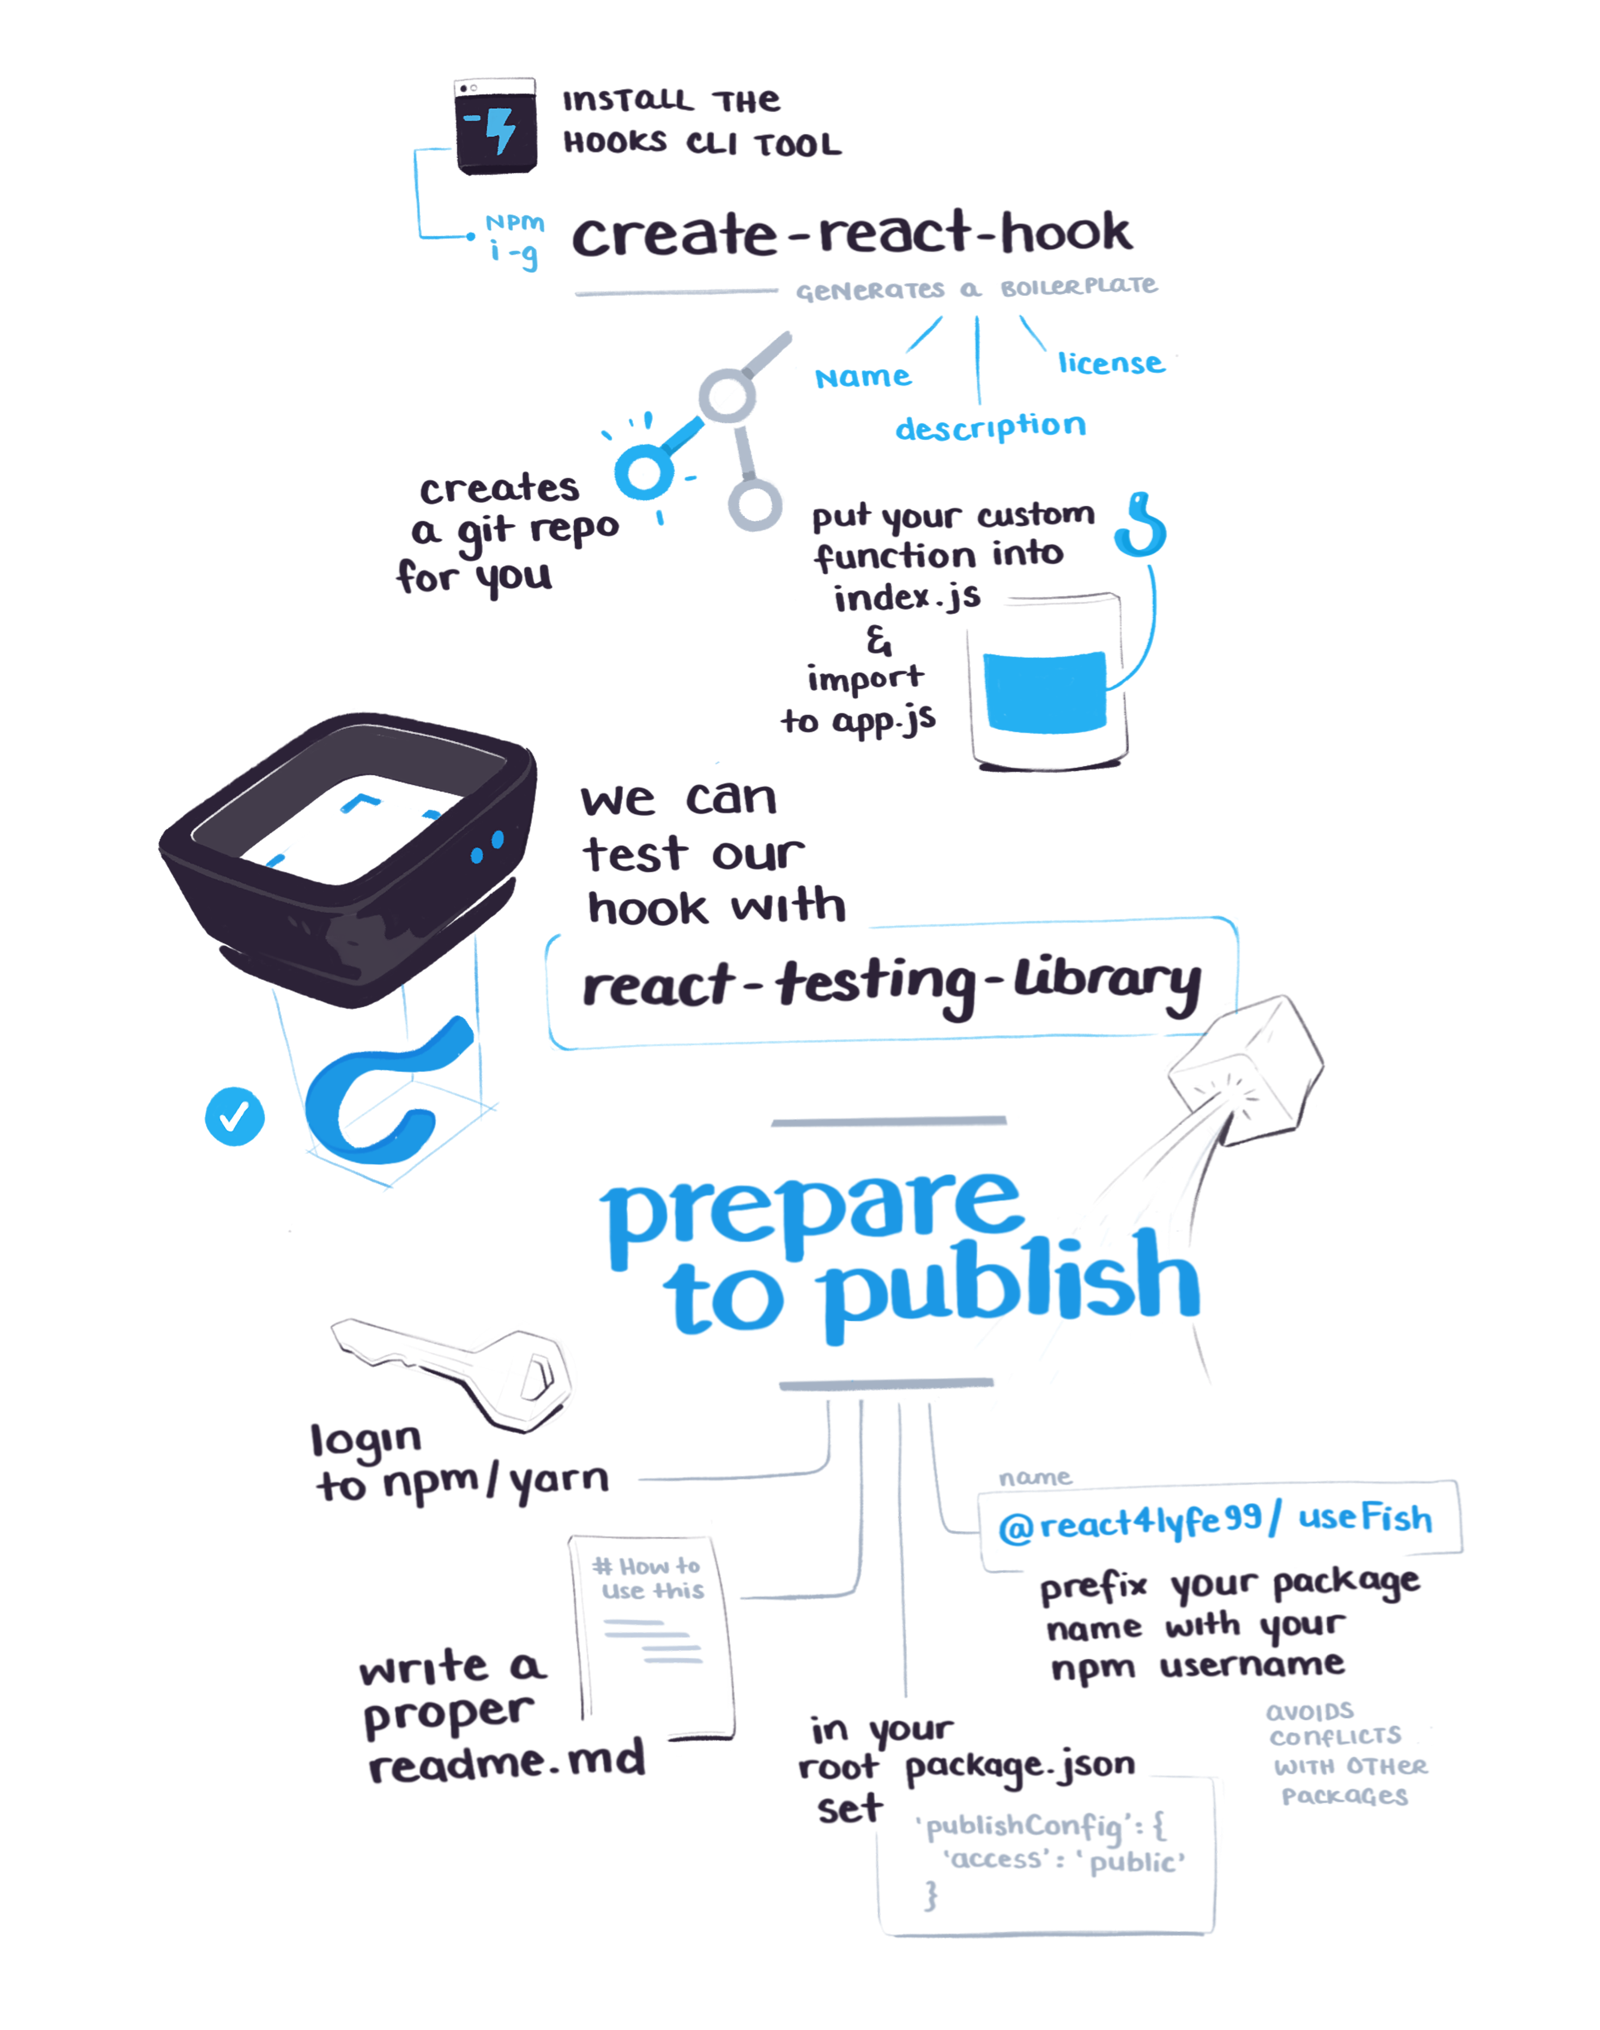 INSTALL THE
HOOKS CLI TOOL
NPM
i -g
create-react-hook
GENERATES a BOILERPLATE
Name
description
license
creates
a git repo
for you
put your custom
function into
index.js
&
import
to app.js
we can
test our
hook with
react-testing-library
prepare
to publish
login
to npm/yarn
# How to
use this
write a
proper
readme.md
in your
root package.json
set
'publishConfig': {
'access': 'public'
}
name
@react4lyfe99/ useFish
prefix your package
name with your
npm username
AVOIDS
CONFLICTS
WITH OTHER
PACKAGES